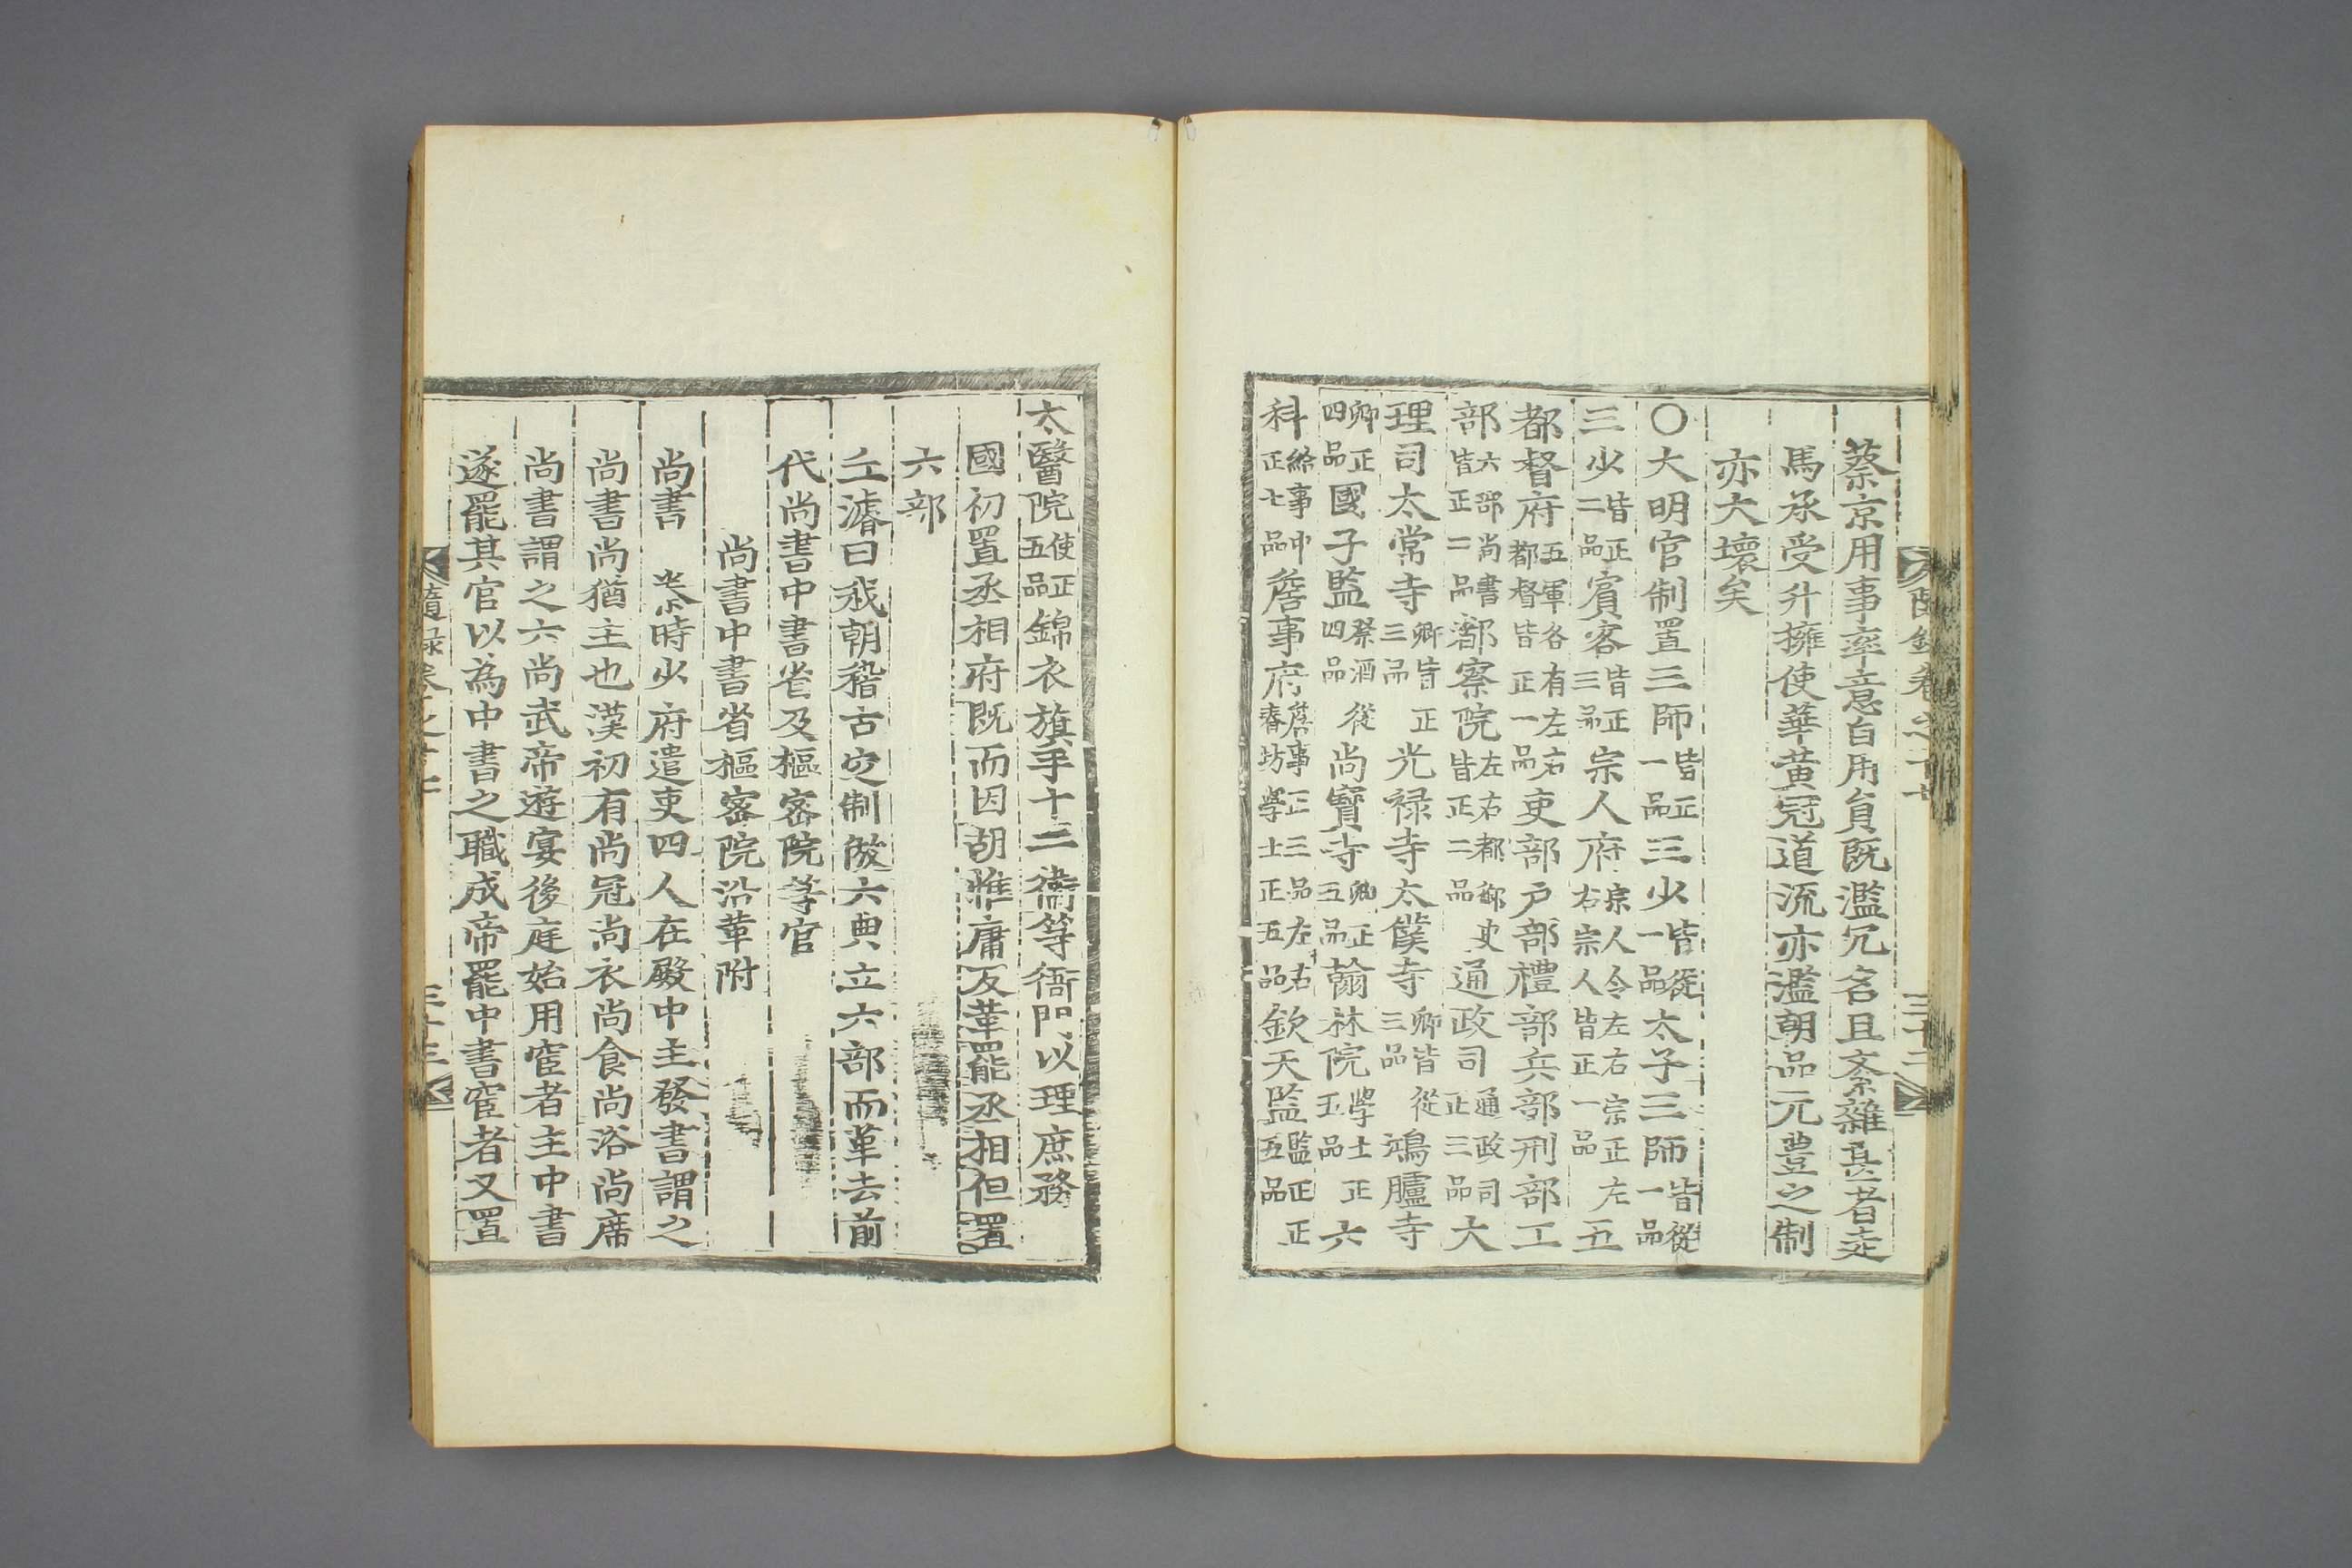 蔡京用事率意自用員既濫冗名且紊雜甚者走
馬承受升擁使華黃冠道流亦濫朝品元豊之制
亦大壞矣
〇大明官制置三師皆正一品三少皆從一品太子三師皆從一品
三少皆正二品賓客皆正三品宗人府宗人令左右宗正左右宗人皆正一品五
都督府五軍各有左右都督皆正一品吏部戶部禮部兵部刑部工
部六部尚書皆正二品都察院左右都御史皆正二品通政司通政司正三品大
理司太常寺卿皆正三品光祿寺太僕寺卿皆從三品鴻臚寺
卿正四品國子監祭酒從四品尚寶寺卿正五品翰林院學士正五品六
科給事中正七品詹事府詹事正三品左右春坊學士正五品欽天監監正正五品
太醫院使正五品錦衣旗手十二衛等衙門以理庶務
國初置丞相府既而因胡惟庸反革罷丞相但置
六部
丘濬曰我朝稽古定制倣六典立六部而革去前
代尚書中書省及樞密院等官
尚書中書省樞密院沿革附
尚書 秦時少府遣吏四人在殿中主發書謂之
尚書尚猶主也漢初有尚冠尚衣尚食尚浴尚席
尚書謂之六尚武帝遊宴後庭始用宦者主中書
遂罷其官以為中書之職成帝罷中書宦者又置
隨錄卷之十七 三十三